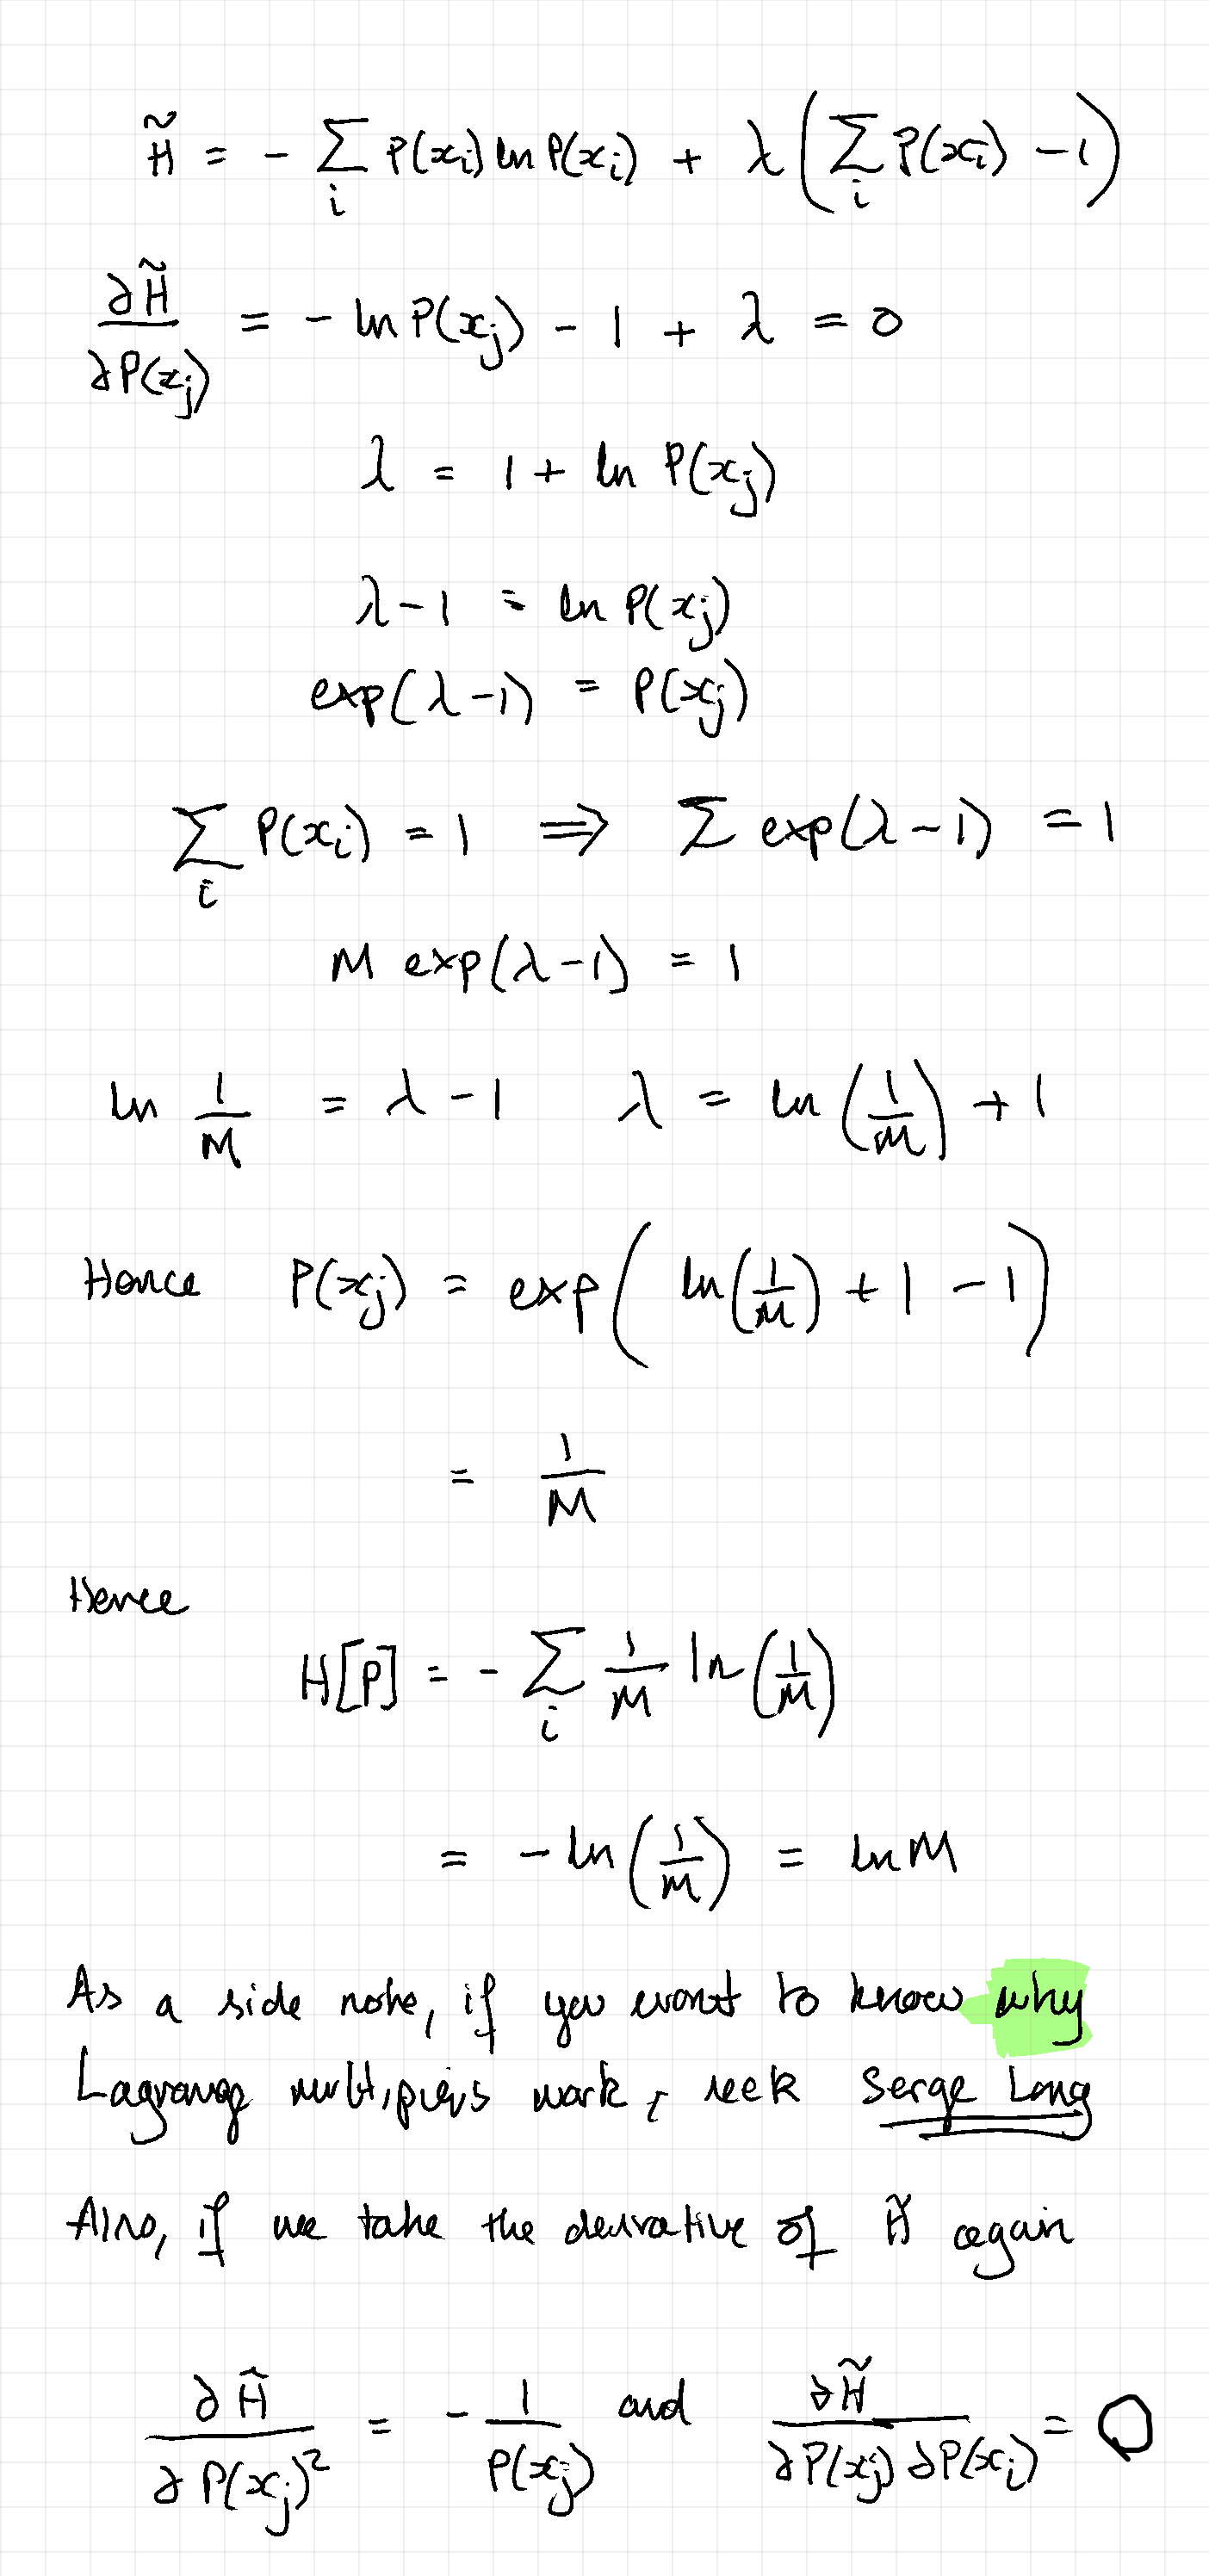 H̃ = - ∑_i P(x_i) ln P(x_i) + λ(∑_i P(x_i) - 1)
∂H̃/∂P(x_j) = - ln P(x_j) - 1 + λ = 0
λ = 1 + ln P(x_j)
λ - 1 = ln P(x_j)
exp(λ - 1) = P(x_j)
∑_i P(x_i) = 1 ⇒ ∑ exp(λ - 1) = 1
M exp(λ - 1) = 1
ln 1/M = λ - 1 λ = ln(1/M) + 1
Hence P(x_j) = exp(ln(1/M) + 1 - 1)
= 1/M
Hence
H[P] = - ∑_i 1/M ln(1/M)
= - ln(1/M) = ln M
As a side note, if you want to know why
Lagrange multipliers work, seek Serge Lang
Also, if we take the derivative of H̃ again
∂H̃/∂P(x_j)² = - 1/P(x_j) and ∂H̃/∂P(x_j)∂P(x_i) = 0